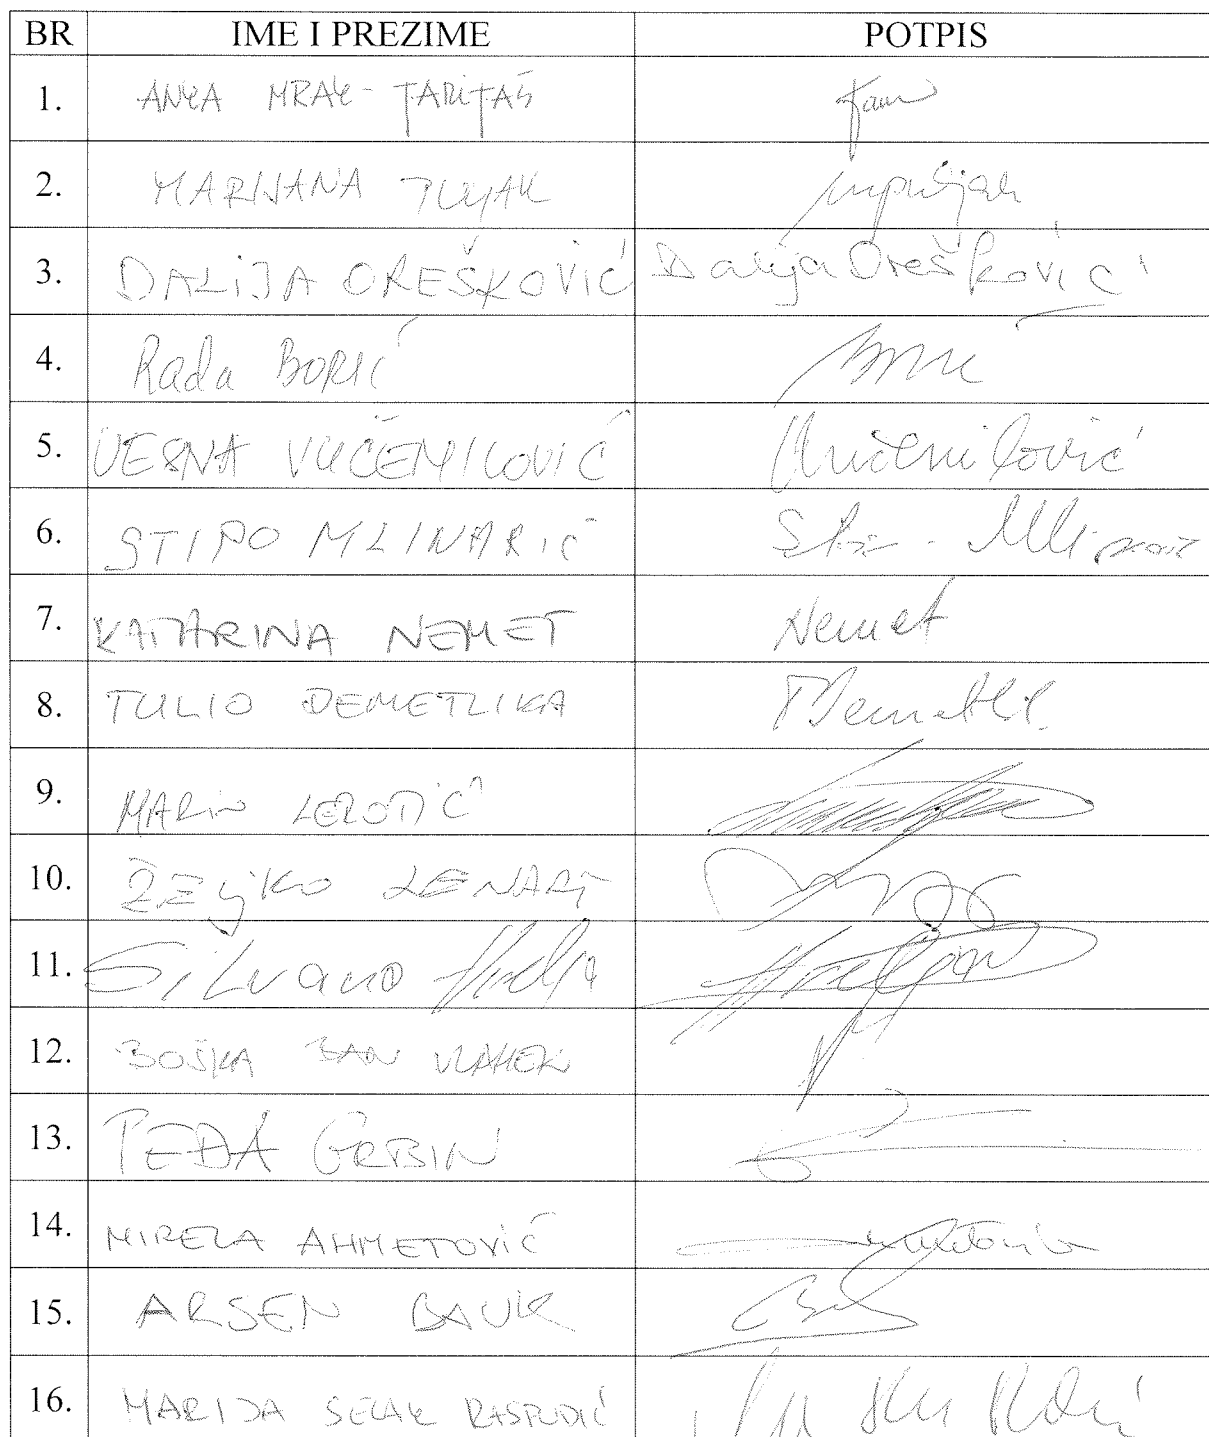 BR IME I PREZIME POTPIS
1. ANKA MRAK-TARITAŠ
2. MARIJANA PULJAK mpuljak
3. DALIJA OREŠKOVIĆ Dalija Orešković
4. Rada BORIĆ Borić
5. VESNA VUČEMILOVIĆ Vučemilović
6. STIPO MLINARIĆ
7. KATARINA NEMET Nemet
8. TULIO DEMETLIKA
9. MARIN LEROTIĆ
10. ŽELJKO LENART
11. SiLvano Hrelja
12. BOŠKA BAN VLAHEK
13. PEĐA GRBIN
14. MIRELA AHMETOVIĆ
15. ARSEN BAUK
16. MARIJA SELAK RASPUDIĆ